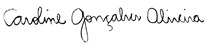 Caroline Gonçalves Oliveira